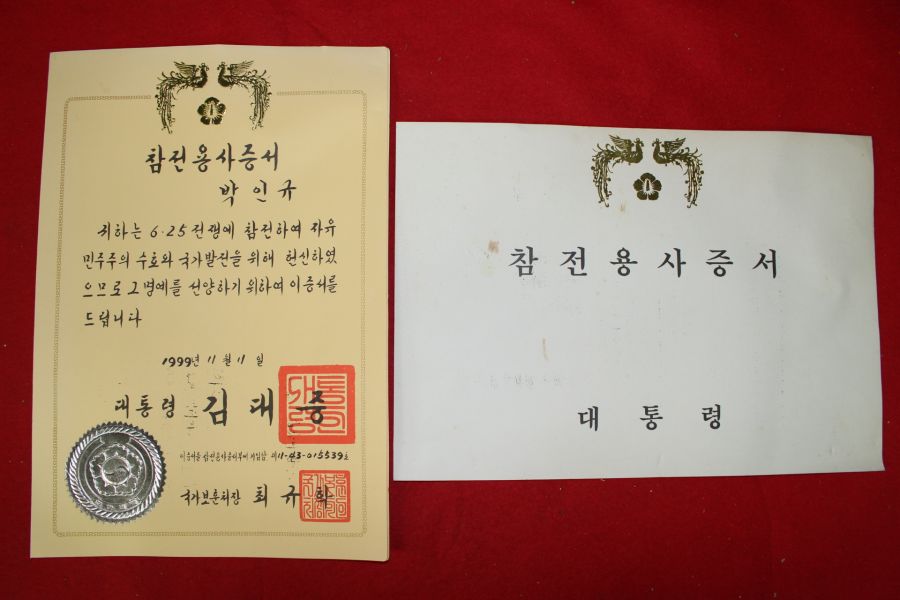 참전용사증서
박인규
귀하는 6·25 전쟁에 참전하여 자유
민주주의 수호와 국가발전을 위해 헌신하였
으므로 그 명예를 선양하기 위하여 이 증서를
드립니다
1999년 11월 11일
대통령 김대중
이 증서를 참전용사증서부에 기입함 제11-43-015539호
국가보훈처장 최규학
참전용사증서
대통령